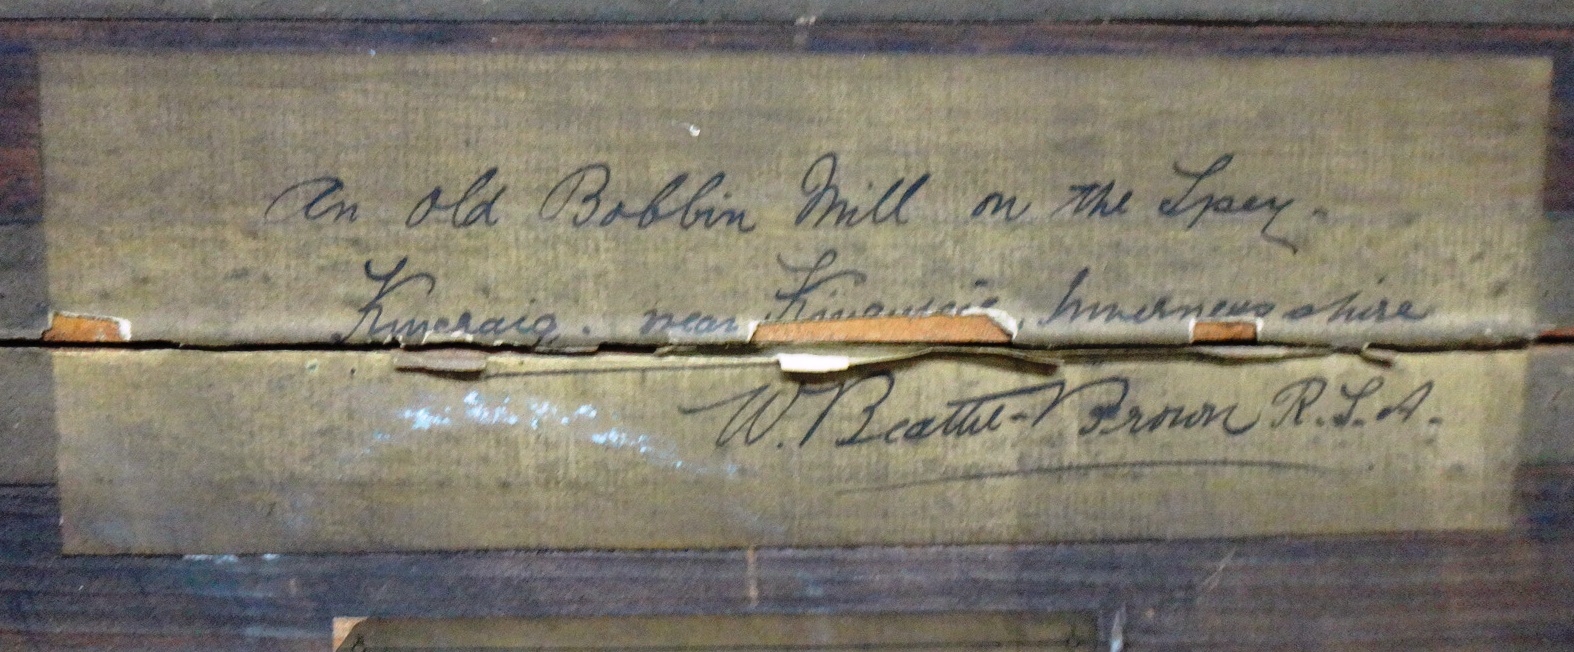 An Old Bobbin Mill on the Spey.
Kincraig. near Kingussie, Invernessshire
W. Beattie-Brown R.S.A.